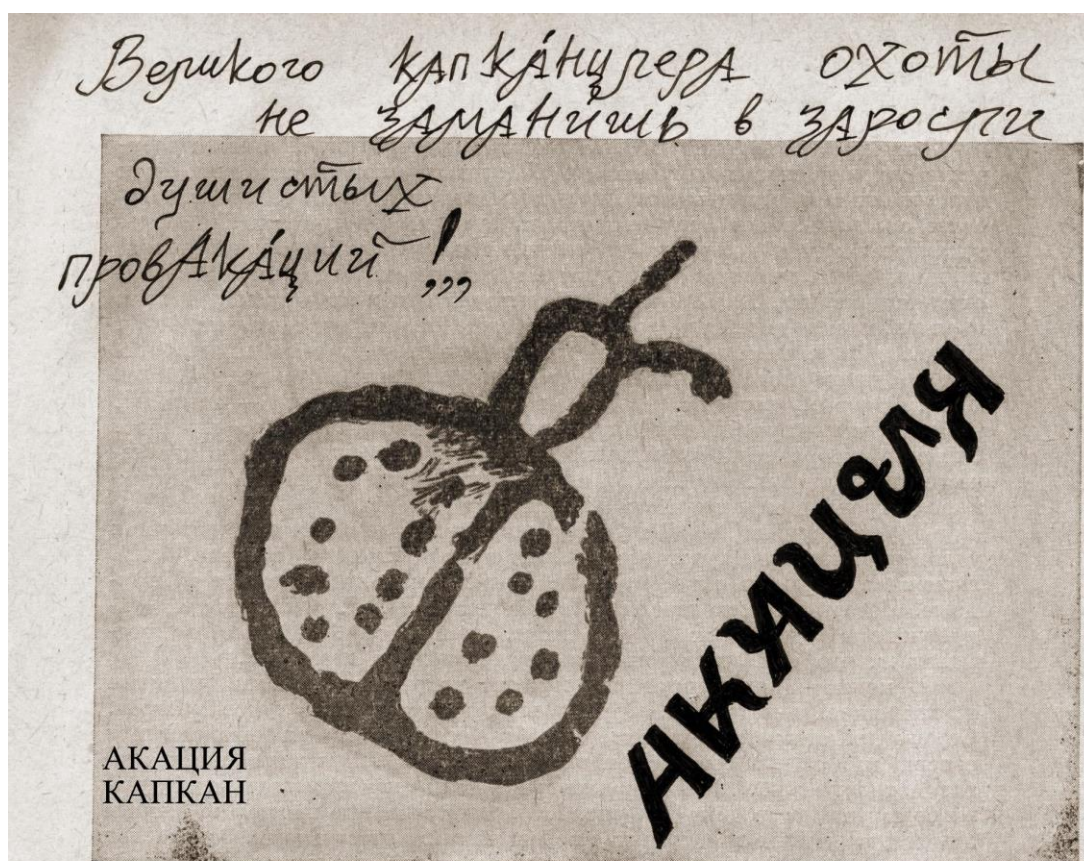 Великого кАпкА́нцлерА охоты
не зАмАни́шь в зАросли
душистых
провАкА́ций!,,,
АКАЦИЯ
АКАЦИЯ
КАПКАН